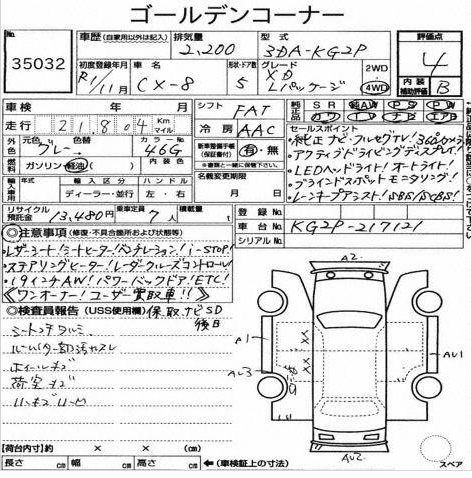 ゴールデンコーナー
No. 35032
車歴 (自家用以外は記入) 排気量 2,200 型式 3DA-KG2P 評価点 4
初度登録年月 R1/11月 車名 CX-8 形状・ドア数 5 グレード XD Lパッケージ 2WD 4WD 内装補助評価 B
車検 年 月 シフト FAT 純正装備品 SR AW PS PW
走行 21,804 Km マイル 冷房 AAC カワ TV ナビ エアB
外装色 元色 グレー 色替 カラーNo. 46G 新車整備手帳(保証書付) 有・無
燃料 ガソリン・軽油( ) 内装色 名義変更期限 月 日
輸入車用 年式 輸入区分 ディーラー・並行 ハンドル 左・右
リサイクル預託金 13,480円 乗車定員 7人 積載量 t
セールスポイント
・純正ナビ・フルセグTV!
・アクティブドライビングディスプレイ!
・LEDヘッドライト!オートライト!
・ブラインドスポットモニタリング!
・レーンキープアシスト!SBS/SCBS!
登録No.
車台No. KG2P-217121
シリアルNo.
◎注意事項(修復・不具合箇所および状態等)
・レザーシート!シートヒーター!ベンチレーション!i-STOP!
・ステアリングヒーター!レーダークルーズコントロール!
・19インチAW!パワーバックドア!ETC!
《ワンオーナー!ユーザー買取車!!》
◎検査員報告(USS使用欄) 保、取、ナビSD後日
荷室キズ
A2
A1
AU3
AU1
AU2
【荷台内寸】約 × ×
長さ cm 幅 cm 高さ cm ←(車検証上の寸法)
スペア